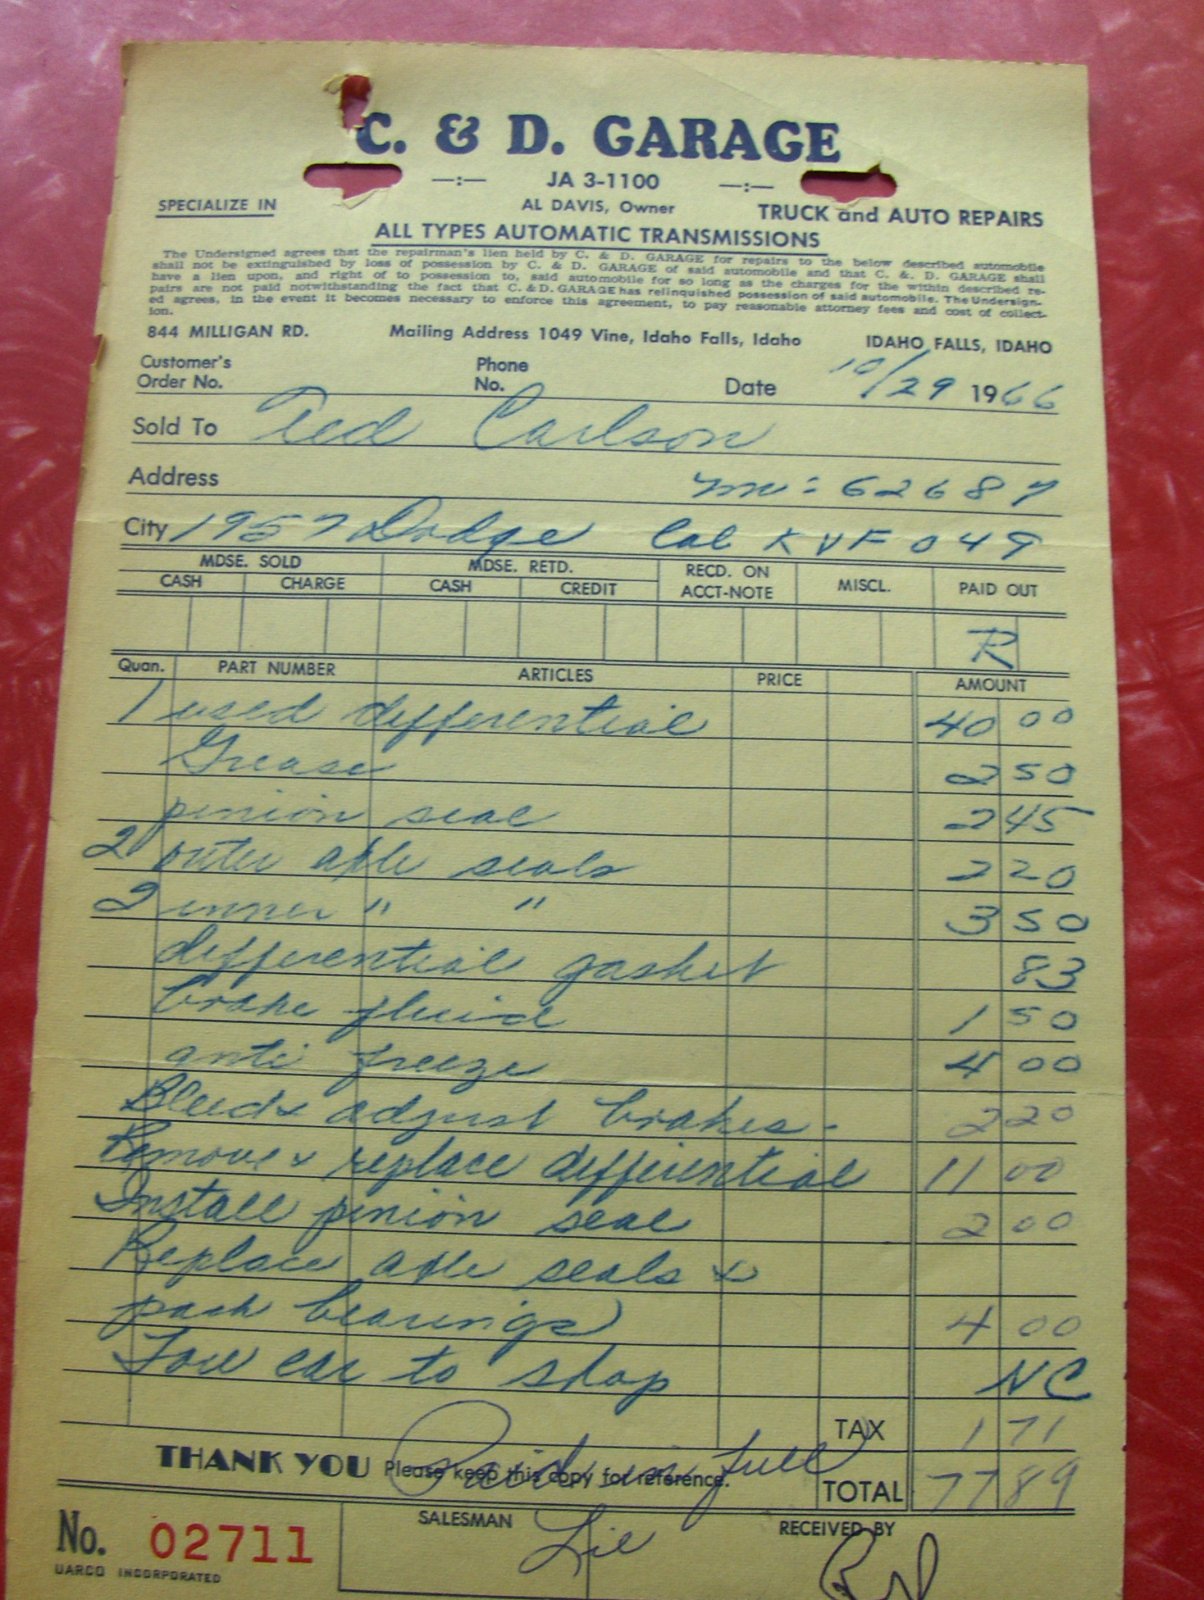 C. & D. GARAGE
—:— JA 3-1100 —:—
SPECIALIZE IN AL DAVIS, Owner TRUCK and AUTO REPAIRS
ALL TYPES AUTOMATIC TRANSMISSIONS
The Undersigned agrees that the repairman's lien held by C. & D. GARAGE for repairs to the below described automobile
shall not be extinguished by loss of possession by C. & D. GARAGE of said automobile and that C. & D. GARAGE shall
have a lien upon, and right of to possession to, said automobile for so long as the charges for the within described re-
pairs are not paid notwithstanding the fact that C. & D. GARAGE has relinquished possession of said automobile. The Undersign-
ed agrees, in the event it becomes necessary to enforce this agreement, to pay reasonable attorney fees and cost of collect-
ion.
844 MILLIGAN RD. Mailing Address 1049 Vine, Idaho Falls, Idaho IDAHO FALLS, IDAHO
Customer's Order No. Phone No. Date 10/29 1966
Sold To Ted Carlson
Address m: 62687
City 1957 Dodge Cal KVF 049
MDSE. SOLD MDSE. RETD. RECD. ON ACCT-NOTE MISCL. PAID OUT
CASH CHARGE CASH CREDIT
R
Quan. PART NUMBER ARTICLES PRICE AMOUNT
1 used differential 40 00
Grease 2 50
pinion seal 2 45
2 outer axle seals 2 20
2 inner " " 3 50
differential gasket 83
brake fluid 1 50
anti freeze 4 00
Bleed & adjust brakes - 2 20
Remove & replace differential 11 00
Install pinion seal 2 00
Replace axle seals &
pack bearings 4 00
Tow car to shop NC
TAX 1 71
THANK YOU Please keep this copy for reference. Paid in full TOTAL 77 89
No. 02711 SALESMAN Lie RECEIVED BY
UARCO INCORPORATED